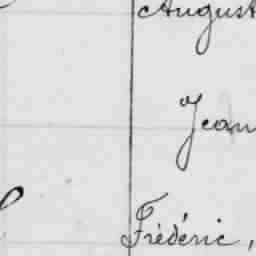 August
Jean
Frédéric,